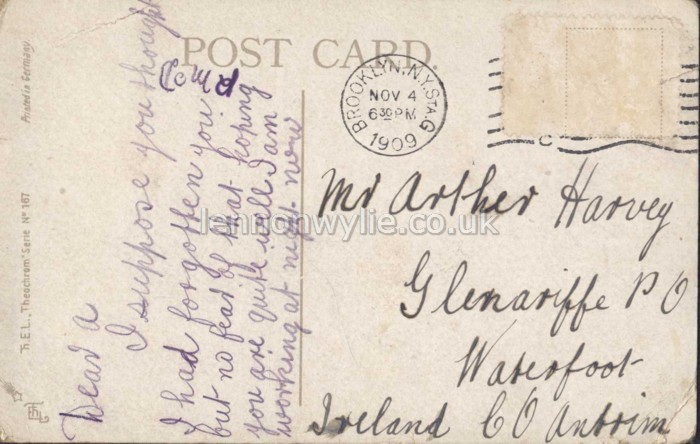 POST CARD.
Printed in Germany.
T.E.L. "Theochrom" Serie No 167
BROOKLYN, N.Y. STA. G
NOV 4
630 PM
1909
C
Dear A
I suppose you thought
I had forgotten you
but no fear of that hoping
you are quite well I am
working at night now
Mr Arther Harvey
Glenariffe P O
Waterfoot
Ireland CO Antrim
lennonwylie.co.uk